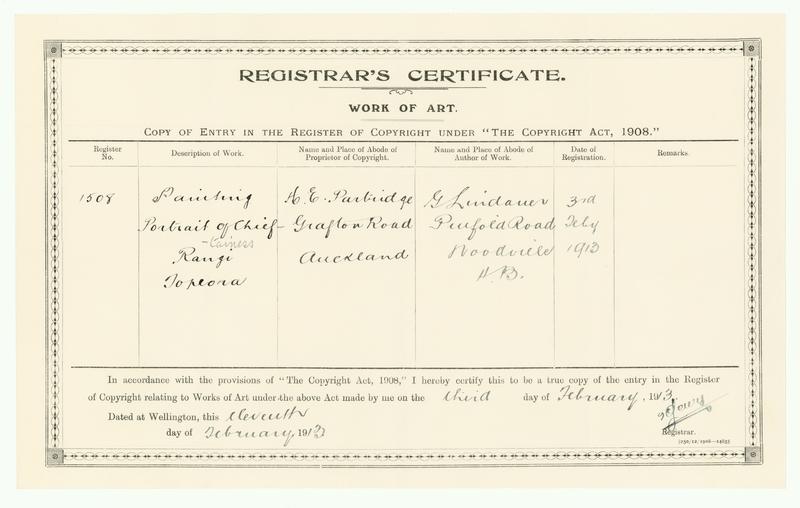 REGISTRAR'S CERTIFICATE.
WORK OF ART.
COPY OF ENTRY IN THE REGISTER OF COPYRIGHT UNDER "THE COPYRIGHT ACT, 1908."
Register No.
Description of Work.
Name and Place of Abode of Proprietor of Copyright.
Name and Place of Abode of Author of Work.
Date of Registration.
Remarks.
1508 Painting H. E. Partridge G Lindauer 3rd
Portrait of Chief- Grafton Road Penfold Road Feby
-tainess
Rangi Auckland Woodville 1913
Topeora H.B.
In accordance with the provisions of "The Copyright Act, 1908," I hereby certify this to be a true copy of the entry in the Register
of Copyright relating to Works of Art under the above Act made by me on the third day of February, 1913.
Dated at Wellington, this eleventh
day of February, 1913
Registrar.